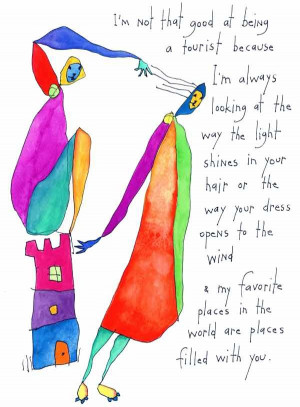 I'm not that good at being
a tourist because
I'm always
looking at the
way the light
shines in your
hair or the
way your dress
opens to the
wind
& my favorite
places in the
world are places
filled with you.